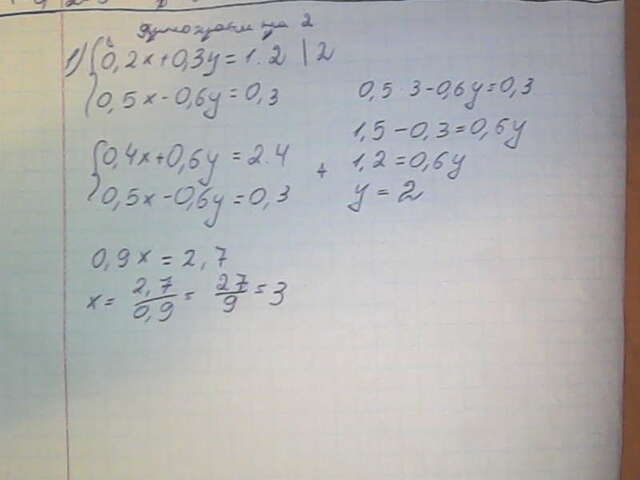 умножаем на 2
1) { 0,2x + 0,3y = 1.2 | 2
0,5x - 0,6y = 0,3
{ 0,4x + 0,6y = 2.4
0,5x - 0,6y = 0,3 +
0,9x = 2,7
x = 2,7/0,9 = 27/9 = 3
0,5 · 3 - 0,6y = 0,3
1,5 - 0,3 = 0,6y
1,2 = 0,6y
y = 2